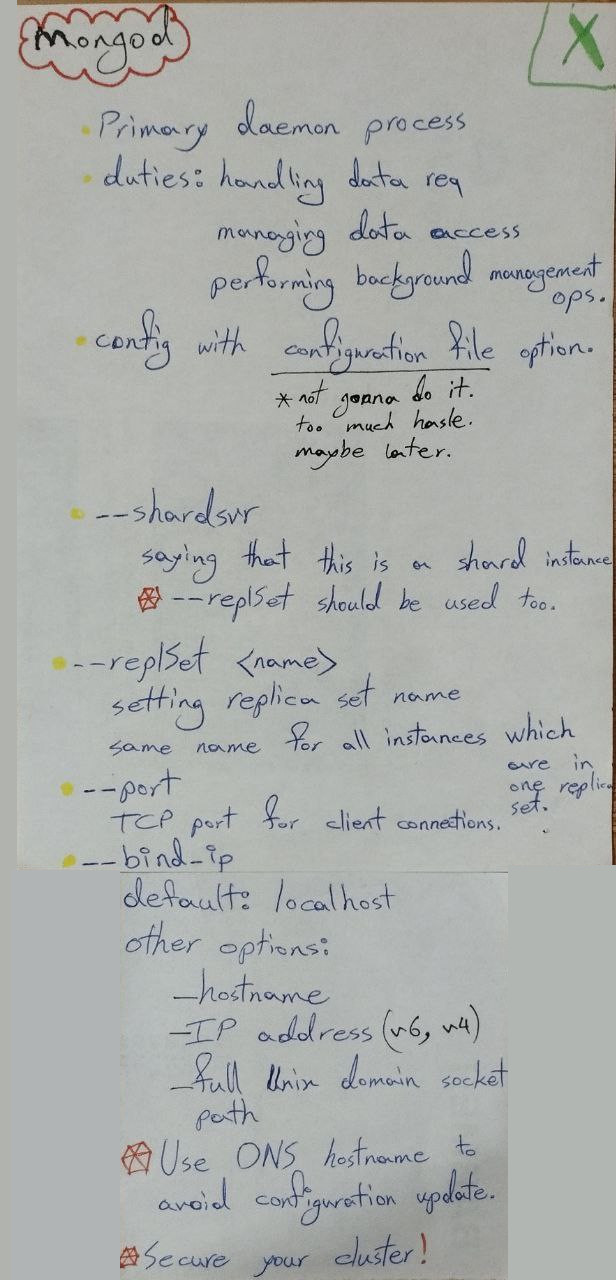 mongod
X
• Primary daemon process
• duties: handling data req
managing data access
performing background management
ops.
• config with configuration file option.
* not gonna do it.
too much hasle.
maybe later.
• --shardsvr
saying that this is a shard instance
--replSet should be used too.
• --replSet <name>
setting replica set name
same name for all instances which
are in
one replica
set.
• --port
TCP port for client connections.
• --bind-ip
default: localhost
other options:
-hostname
-IP address (v6, v4)
-full Unix domain socket
path
Use DNS hostname to
avoid configuration update.
Secure your cluster!